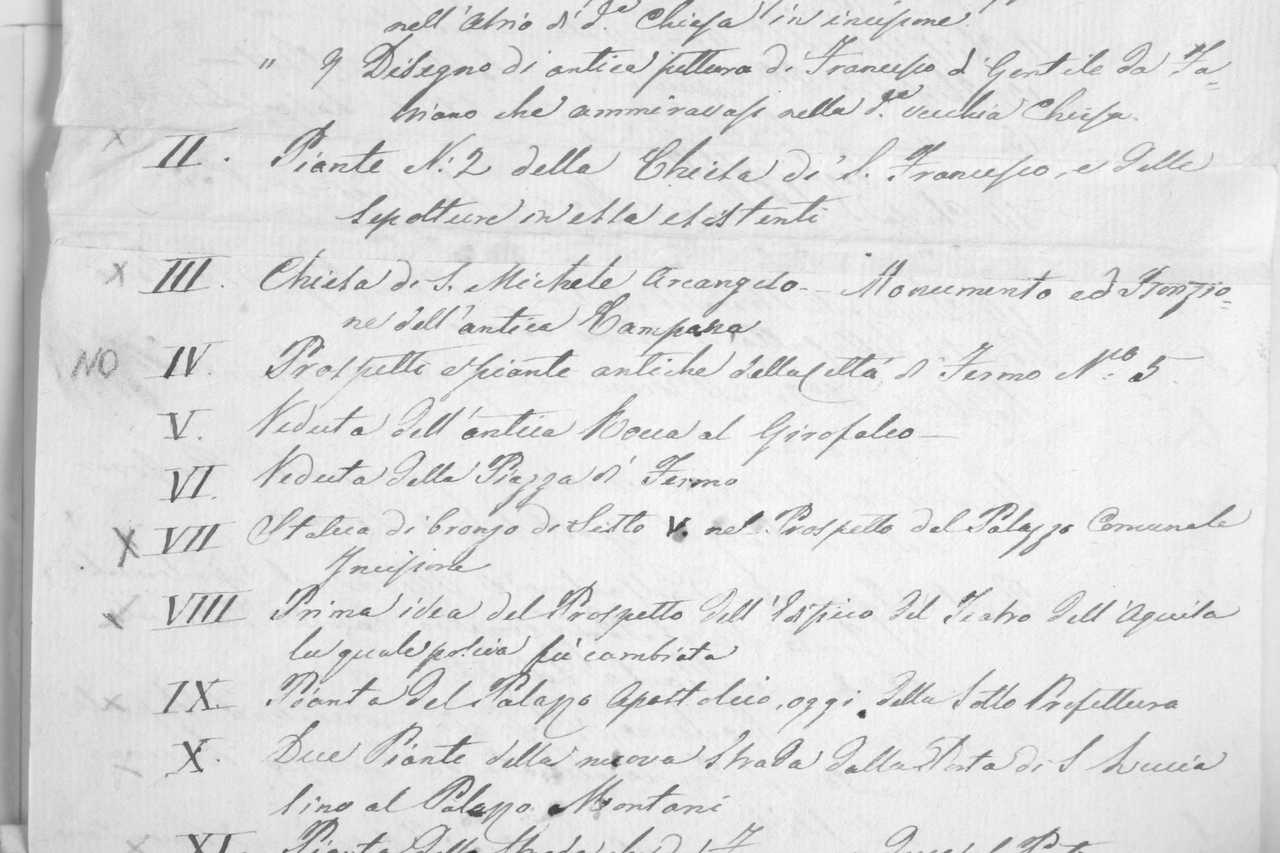 nell'atrio di d.ª Chiesa in incisione
" 9 Disegno di antica pittura di Francesco di Gentile da Fa=
briano che ammiravasi nella d.ª vecchia Chiesa.
x II. Piante N: 2 della Chiesa di S. Francesco, e delle
Sepolture in essa esistenti
x III. Chiesa di S. Michele Arcangelo - Monumento ed Iscrizio=
ne dell'antica Campana
NO IV. Prospetti e piante antiche della Città di Fermo N.º 5.
V. Veduta dell'antica Rocca al Girofalco -
VI. Veduta della Piazza di Fermo
X VII Statua di bronzo di Sisto V. nel Prospetto del Palazzo Comunale
Incisione
x VIII Prima idea del Prospetto dell'Edificio del Teatro dell'Aquila
la quale fù cambiata
x IX. Pianta del Palazzo Apostolico, oggi della Sotto Prefettura
x X. Due Piante della nuova Strada dalla Porta di S Lucia
sino al Palazzo Montani
XI. Pianta della Strada